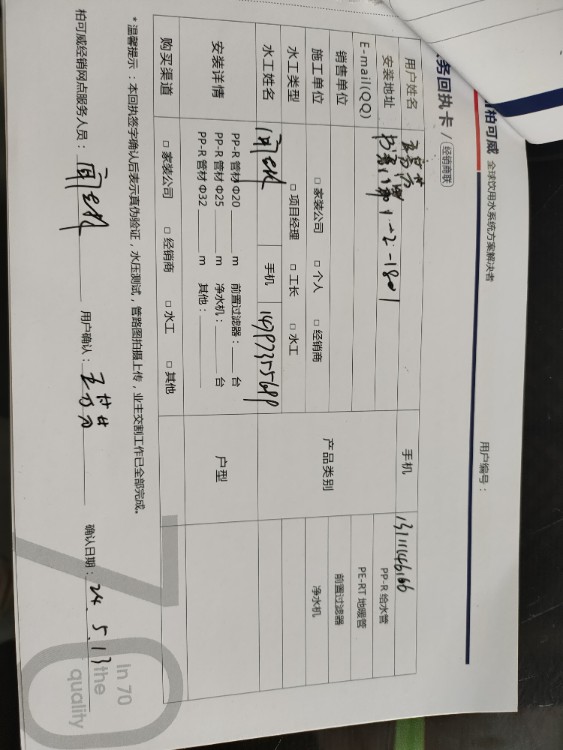 柏可威 全球饮用水系统方案解决者
用户编号：
务回执卡 / 经销商联
用户姓名
手机 13111146166
安装地址 1-2-1801
E-mail(QQ)
销售单位
施工单位 □ 家装公司 □ 个人 □ 经销商
水工类型 □ 项目经理 □ 工长 □ 水工
产品类别
PP-R 给水管
PE-RT 地暖管
前置过滤器
净水机
水工姓名 手机
安装详情
PP-R 管材 Φ20 m 前置过滤器： 台
PP-R 管材 Φ25 m 净水机： 台
PP-R 管材 Φ32 m 其他：
户型
购买渠道 □ 家装公司 □ 经销商 □ 水工 □ 其他
* 温馨提示：本回执签字确认后表示真伪验证，水压测试，管路图拍摄上传，业主交割工作已全部完成。
柏可威经销网点服务人员： 用户确认： 确认日期：24 5.13
70
In 70
the
quality